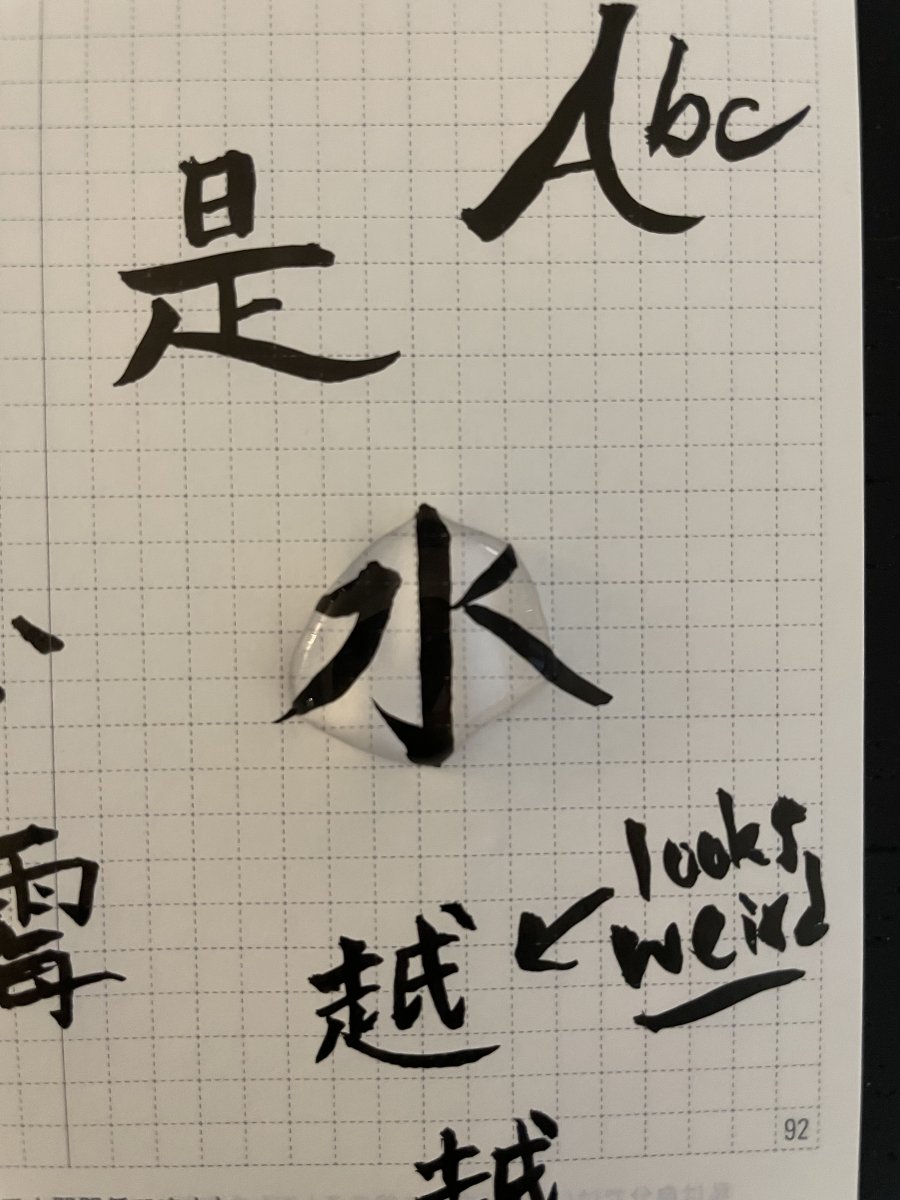 Abc
是
水
霉
looks
weird
越
越
92